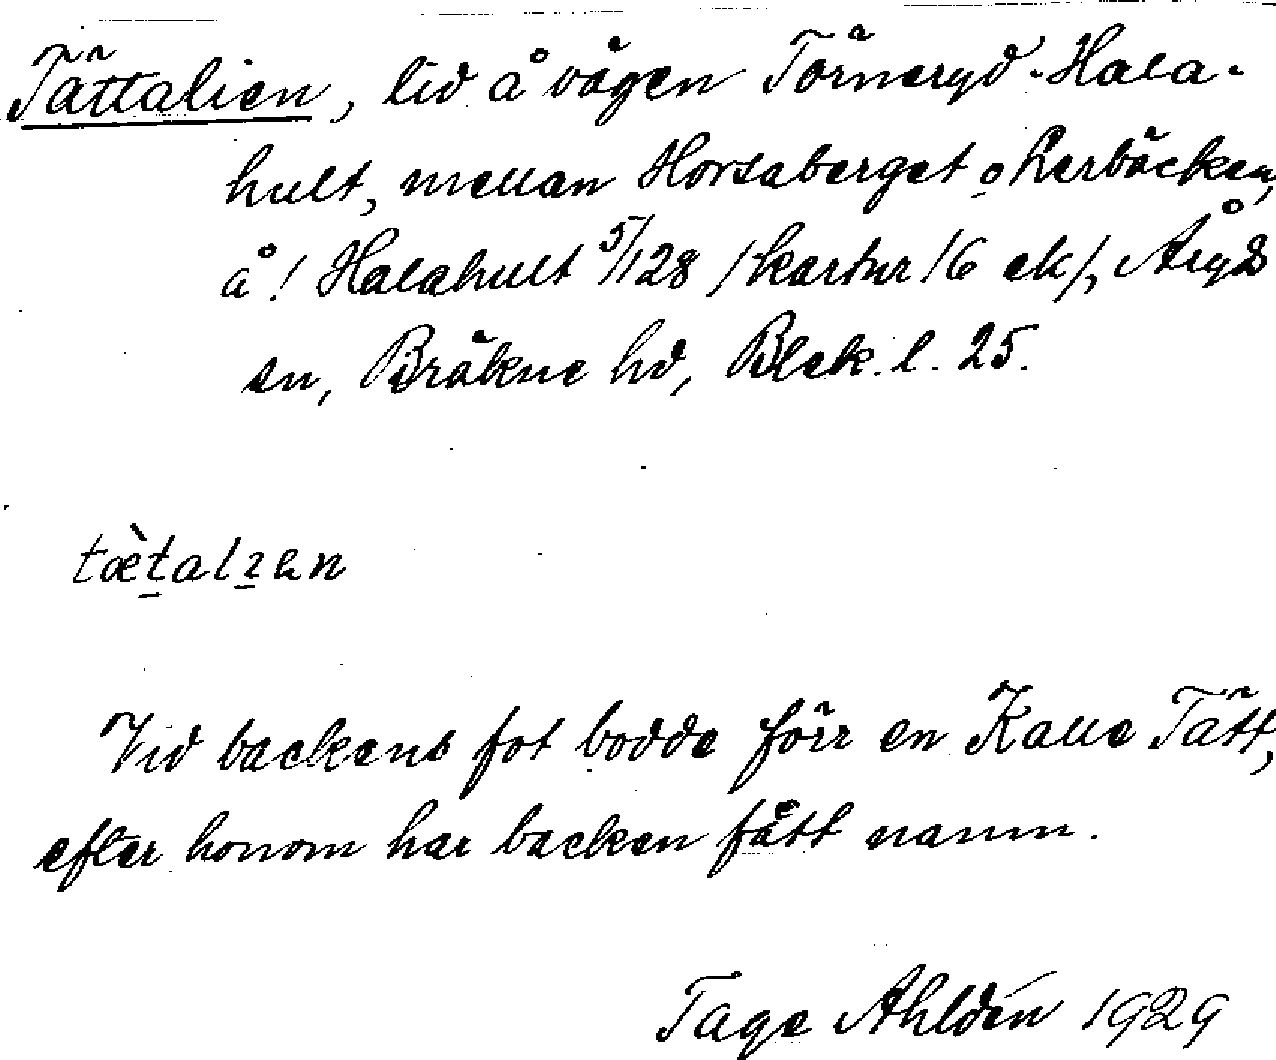 Tättalien, lid å vägen Törneryd-Hala-
hult, mellan Horsaberget o Kerbäcken,
å! Halahult 5/128 /kartnr 16 ek/, Åryds
sn, Bräkne hd, Blek. l. 25.
tæ̀talien
Vid backens fot bodde förr en Kalle Tätt,
efter honom har backen fått namn.
Tage Ahldén 1929